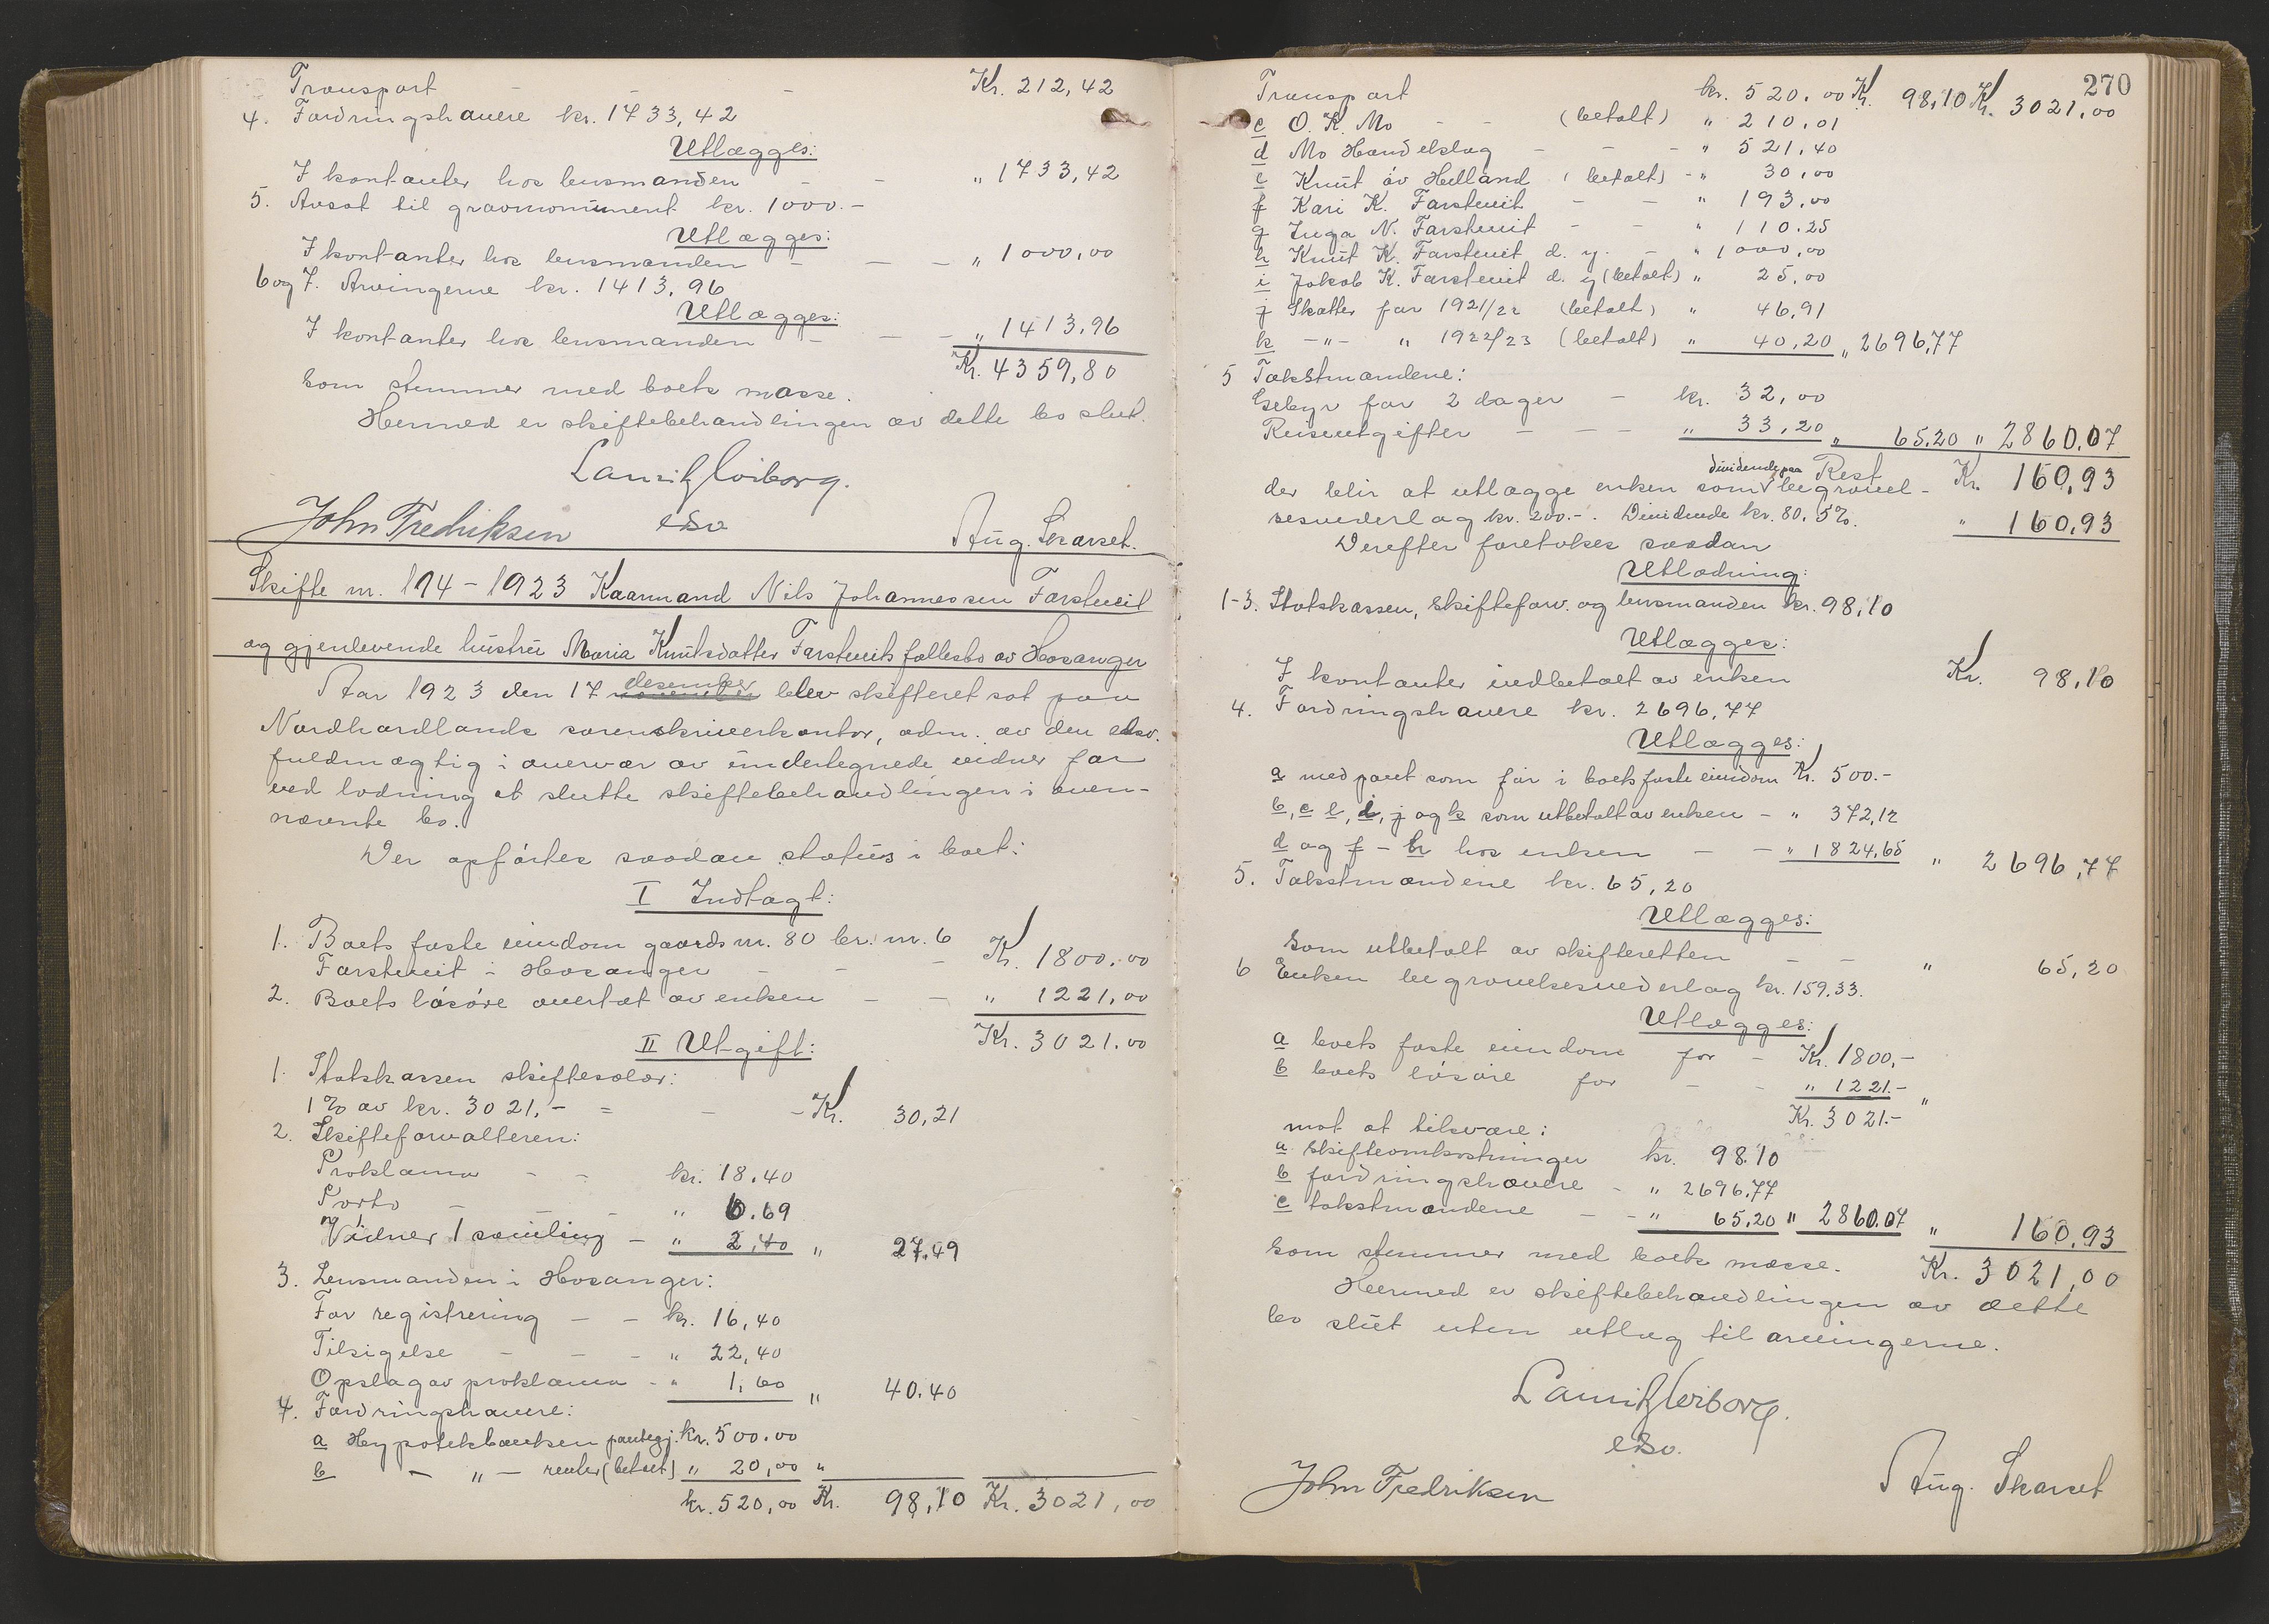 Transport - - Kr. 212,42
4. Fordringshavere kr. 1733,42
Utlægges:
I kontanter hos lensmanden - - " 1733,42
5. Avsat til gravmonument kr. 1000.-
Utlægges:
I kontanter hos lensmanden - - - " 1000,00
6 og 7. Arvingerne kr. 1413,96
Utlægges:
I kontanter hos lensmanden - - - " 1413,96
Kr. 4359,80
som stemmer med boets masse.
Hermed er skiftebehandlingen av dette bo slut.
Lauritz Wiborg.
edsv
John Fredriksen Aug. Skarset.
Skifte nr. 114-1923 Kaarmand Nils Johannessen Farstveit
og gjenlevende hustru Maria Knutsdatter Farstveits fællesbo av Hosanger
Aar 1923 den 17 desember blev skifteret sat paa
Nordhordlands sorenskriverkontor, adm. av den edsv.
fuldmægtig i overvær av undertegnede vidner for
ved lodning at slutte skiftebehandlingen i oven-
nævnte bo.
Der opførtes saadan status i boet:
I Indtægt:
1. Boets faste eiendom gaards nr. 80 br. nr. 6
Farstveit i Hosanger - - - Kr. 1800.00
2. Boets løsøre overtat av enken - - " 1221,00
Kr. 3021.00
II Utgift:
1. Statskassen skiftesalær:
1% av kr. 3021,- = - - Kr. 30,21
2. Skifteforvalteren:
Proklama - - kr. 18.40
Porto - - " 6.69
Vidner 1 samling - " 2,40 " 27.49
3. Lensmanden i Hosanger:
For registrering - - kr. 16,40
Tilsigelse - - - " 22,40
Opslag av proklama - " 1,60 " 40.40
4. Fordringshavere:
a Hypotekbanken pantegj. kr. 500.00
b - " - renter (betalt) " 20,00 "
kr. 520,00 Kr. 98,10 Kr. 3021,00
270
Transport kr. 520.00 Kr. 98,10 Kr. 3021,00
c O. K. Mo - - (betalt) " 210,01
d Mo Handelslag - - - " 521,40
e Knut av Helland (betalt) - " 30,00
f Kari K. Farstveit - - " 193,00
g Inga N. Farstveit - - " 110.25
h Knut K. Farstveit d. y. - " 1000,00
i Jakob K. Farstveit d. y (betalt) " 25,00
j Skatter for 1921/22 (betalt) " 46,91
k - " - " 1922/23 (betalt) " 40,20 " 2696,77
5 Takstmændene:
Gebyr for 2 dager - kr. 32,00
Reiseutgifter - - - " 33,20 " 65.20 " 2860.07
dividende paa Rest Kr. 160,93
der blir at utlægge enken som begravel-
sesvederlag kr. 200.-. Dividende kr. 80,5%. " 160,93
Derefter foretokes saadan
Utlodning:
1-3. Statskassen, skifteforv. og lensmanden kr. 98,10
Utlægges:
I kontanter indbetalt av enken Kr. 98,10
4. Fordringshavere kr. 2696,77
Utlægges:
a med pant som før i boets faste eiendom Kr. 500.-
b, c e, i, j og k som utbetalt av enken - " 372,12
d og f - h hos enken - - " 1824,65 " 2696,77
5. Takstmændene kr. 65,20
Utlægges:
som utbetalt av skifteretten - - " 65,20
6 Enken begravelsesvederlag kr. 159.33.
Utlægges:
a boets faste eiendom for - Kr. 1800,-
b boets løsøre for - - " 1221.- "
Kr. 3021.-
mot at tilsvare:
a skifteomkostninger kr. 98.10
b fordringshavere - " 2696.77
c takstmændene - - " 65,20 " 2860.07 " 160.93
som stemmer med boets masse. Kr. 3021,00
Hermed er skiftebehandlingen av dette
bo slut uten utlæg til arvingerne.
Lauritz Wiborg.
edsv.
John Fredriksen Aug. Skarset